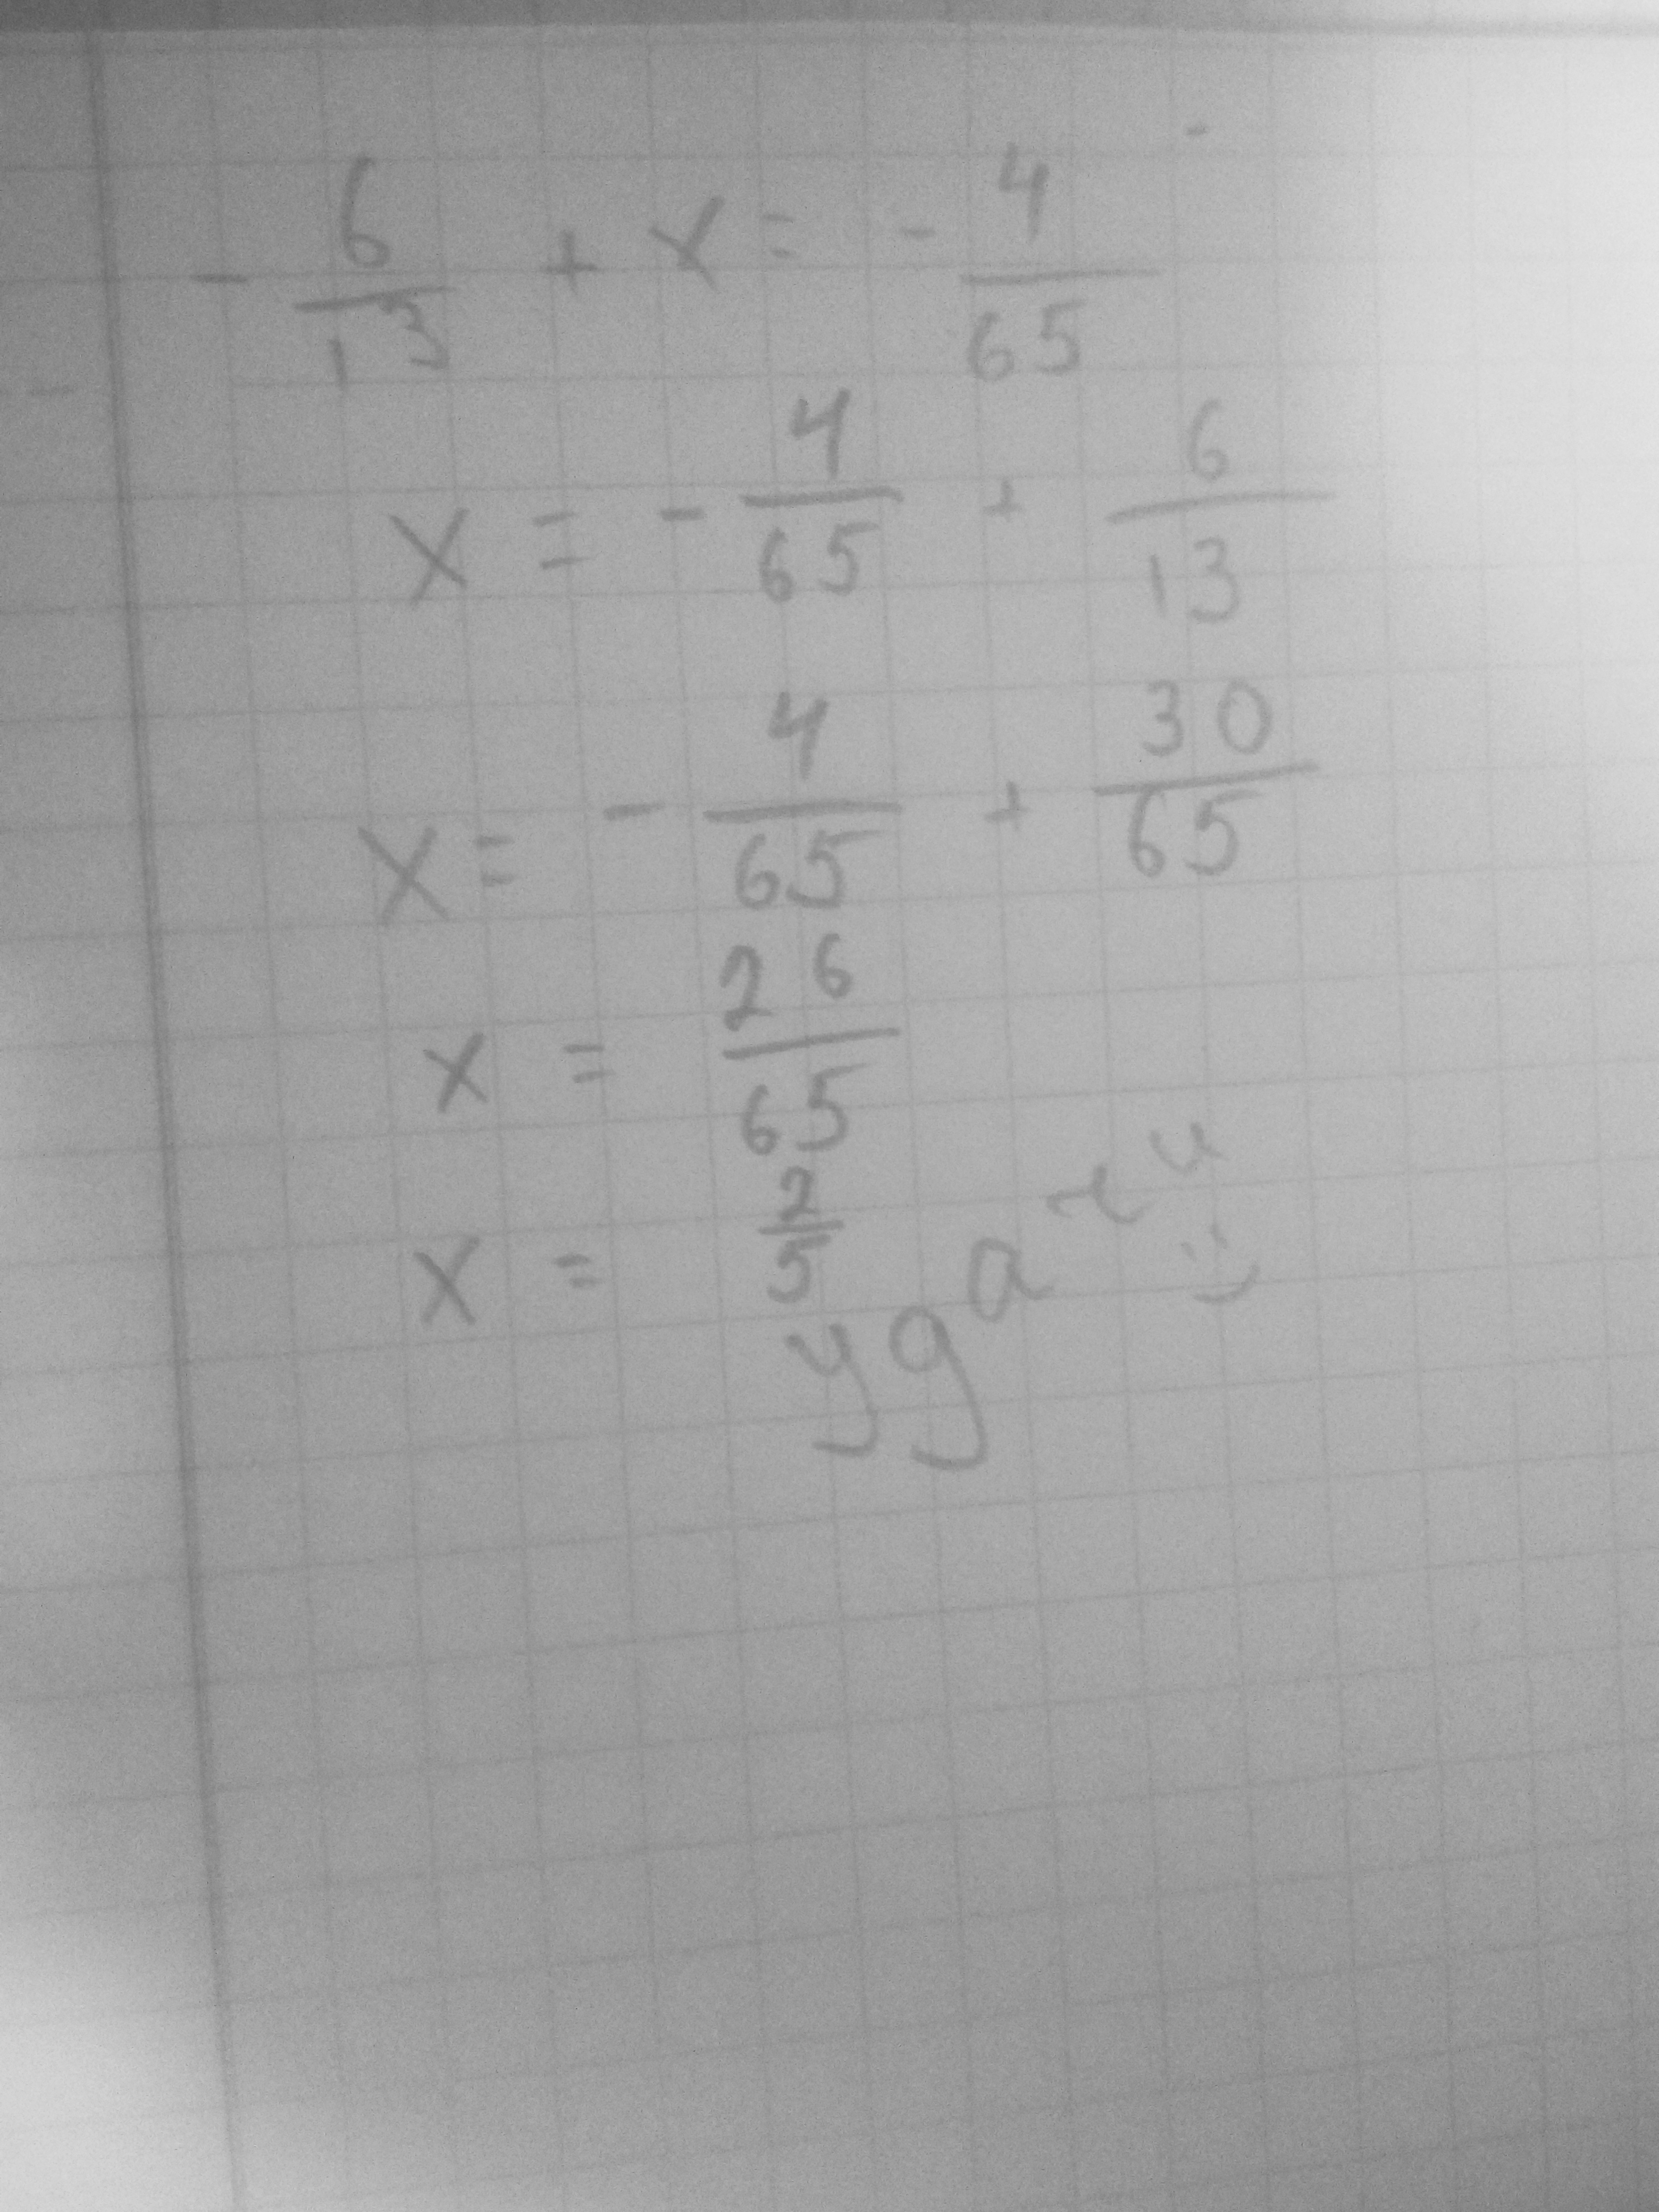 - 6/13 + x = - 4/65
x = - 4/65 + 6/13
x = - 4/65 + 30/65
x = 26/65
x = 2/5
удачи :)